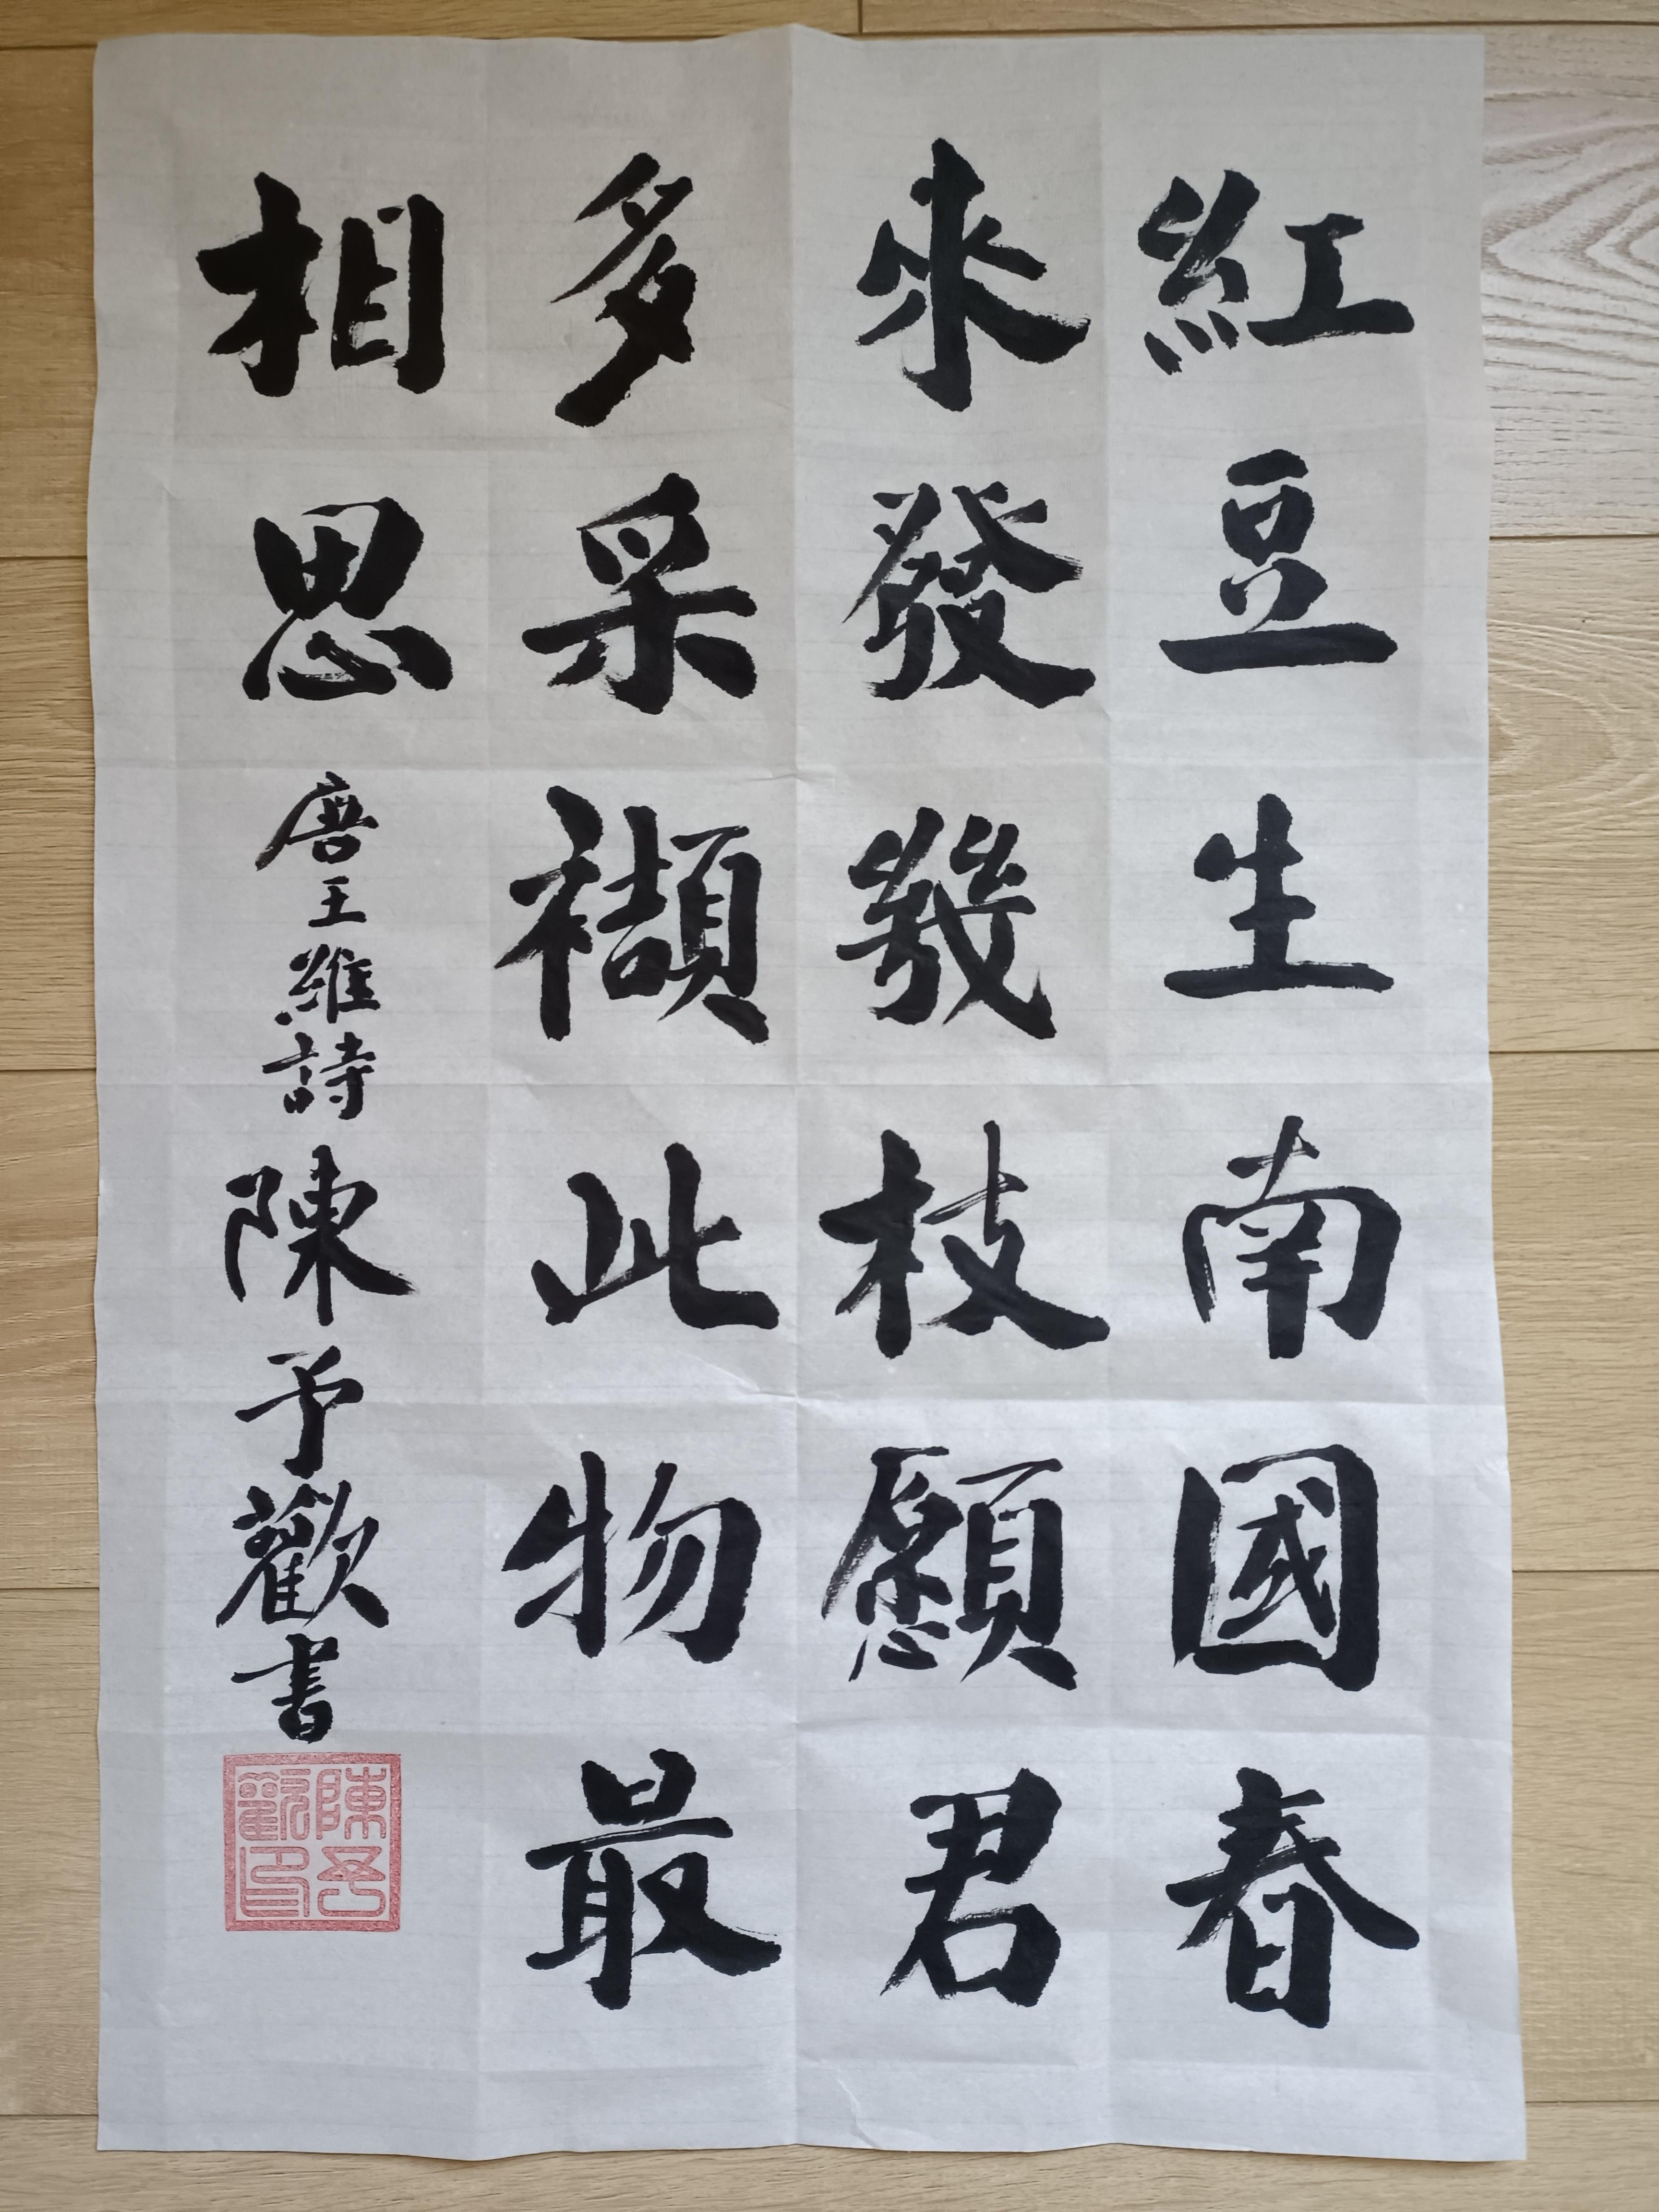 紅豆生南國春
來發幾枝願君
多采襭此物最
相思 唐王維詩 陳予歡書
陳予歡印